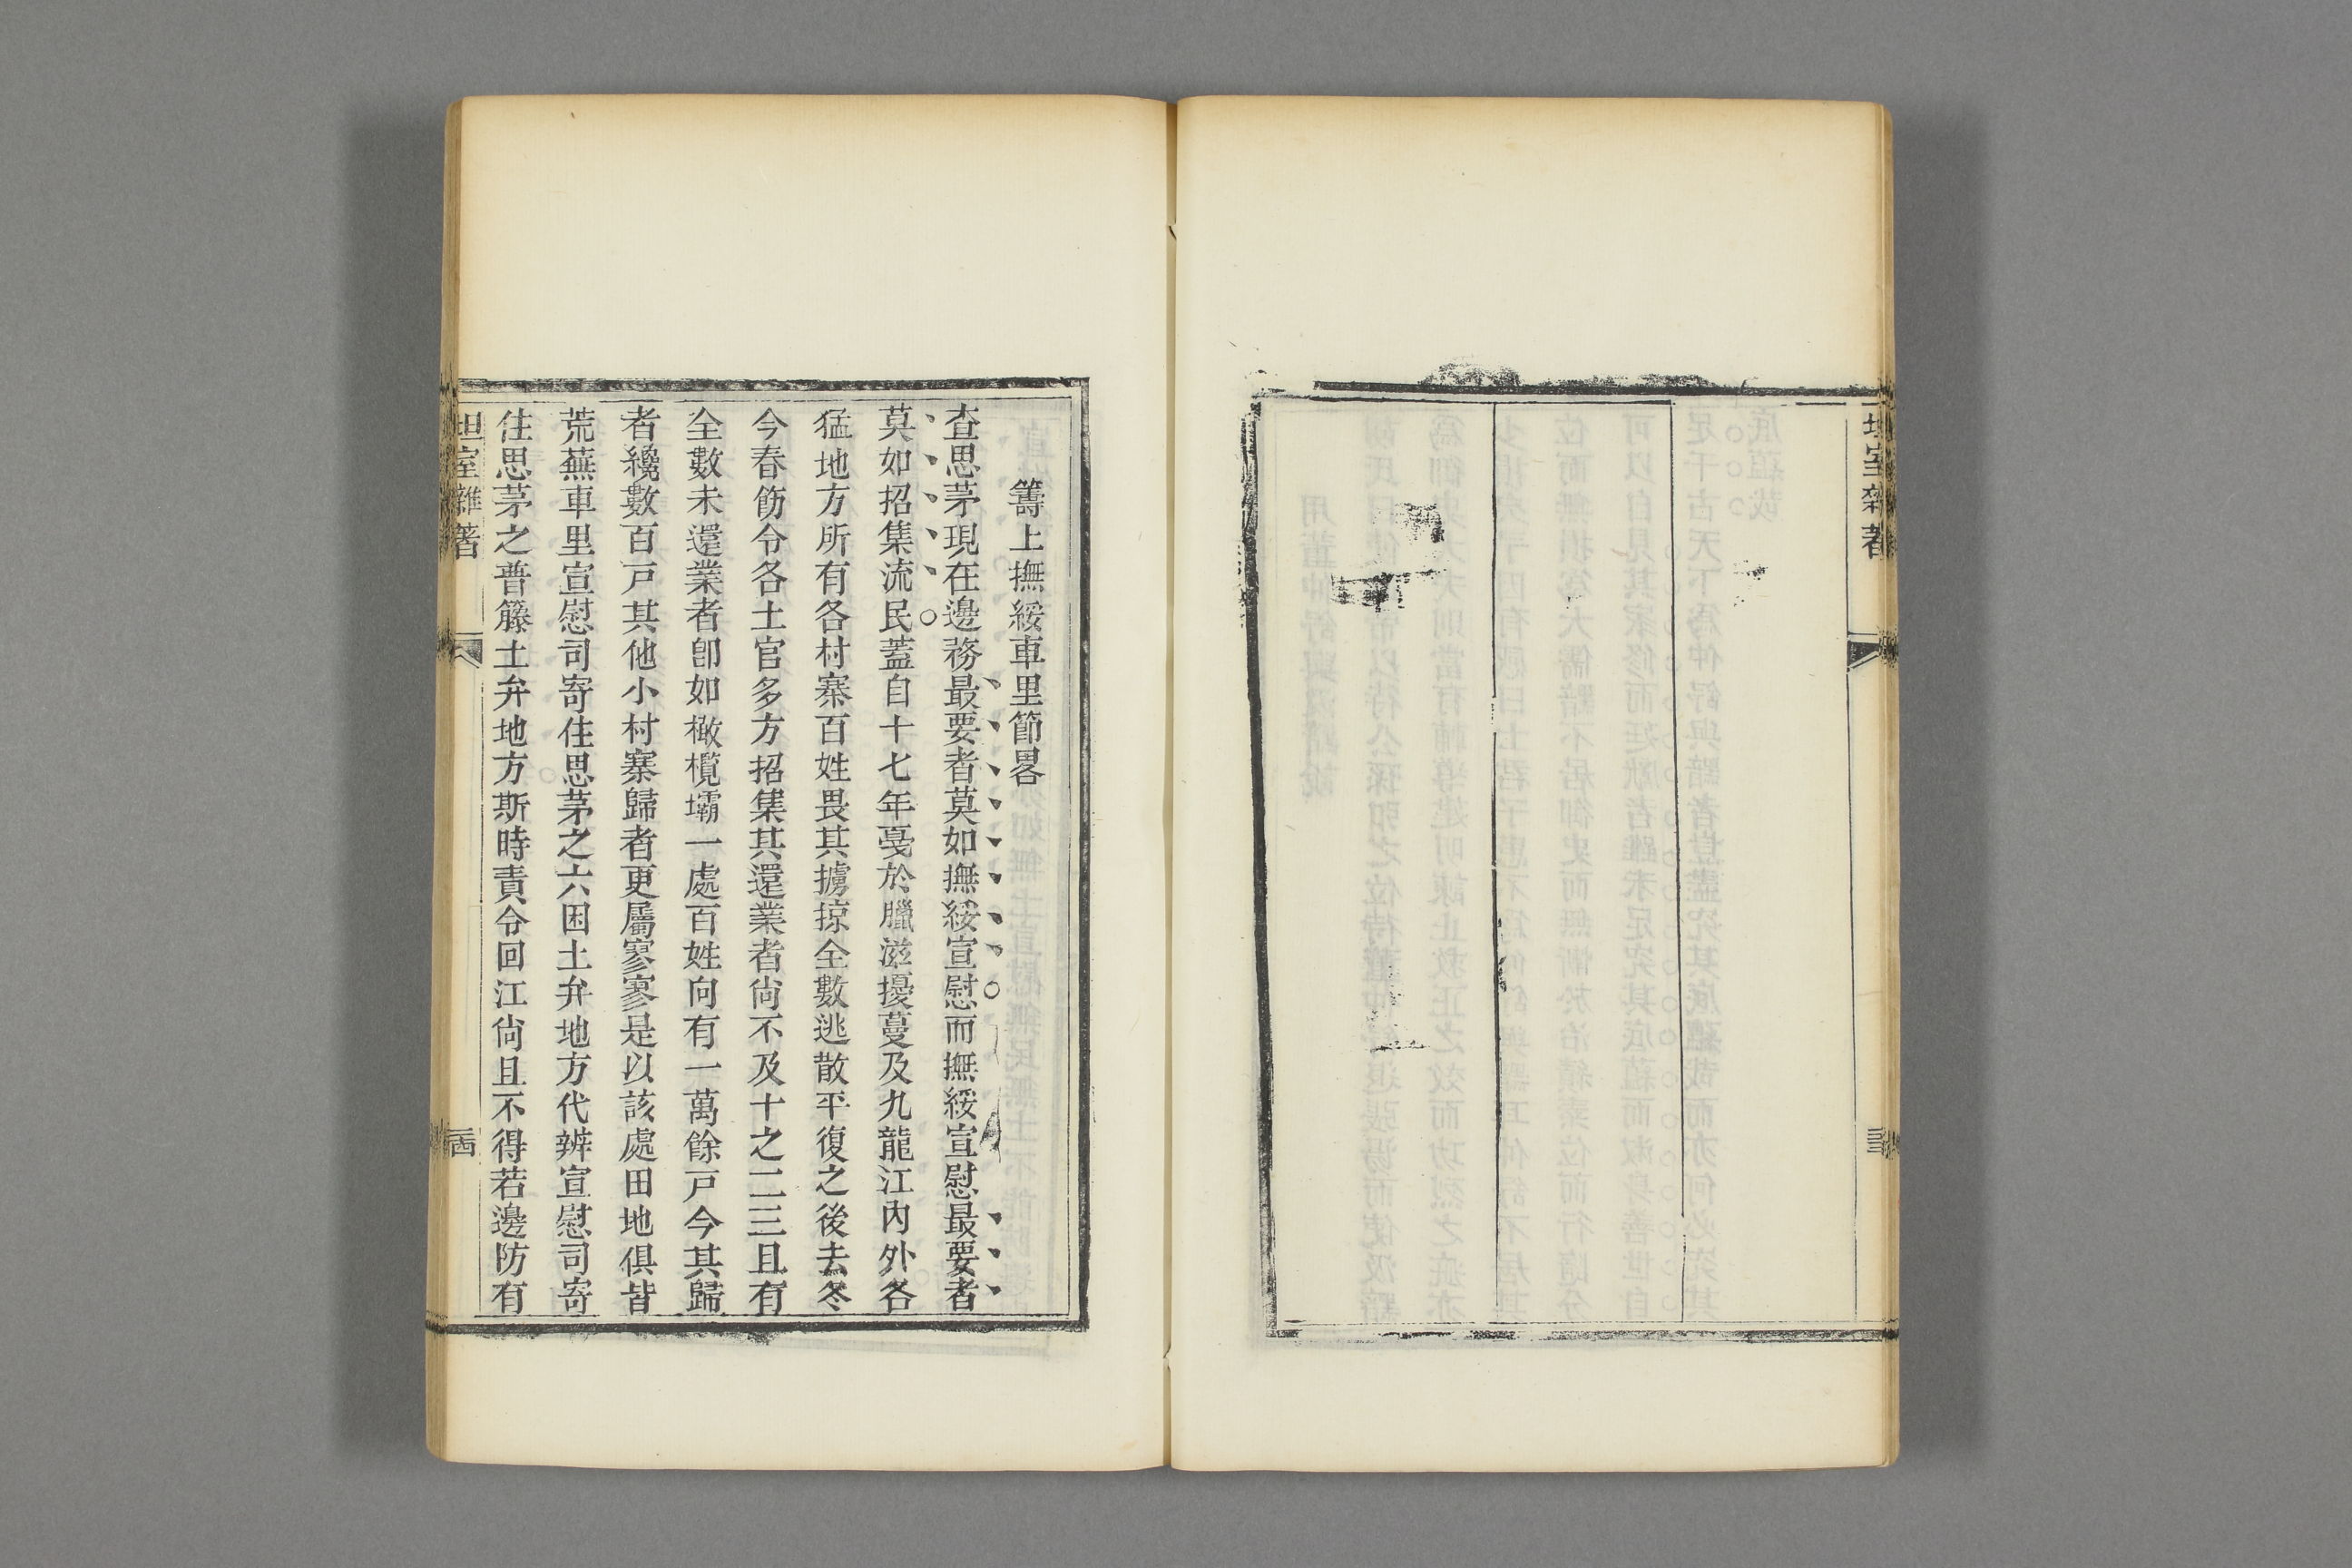 坦室雜著
籌上撫綏車里節畧
查思茅現在邊務最要者莫如撫綏宣慰而撫綏宣慰最要者
莫如招集流民蓋自十七年戞於臘滋擾蔓及九龍江內外各
猛地方所有各村寨百姓畏其擄掠全數逃散平復之後去冬
今春飭令各土官多方招集其還業者尙不及十之二三且有
全數未還業者卽如橄欖壩一處百姓向有一萬餘戸今其歸
者纔數百戸其他小村寨歸者更屬寥寥是以該處田地俱皆
荒蕪車里宣慰司寄住思茅之六困土弁地方代辨宣慰司寄
住思茅之普籐土弁地方斯時責令回江尙且不得若邊防有
坦室雜著